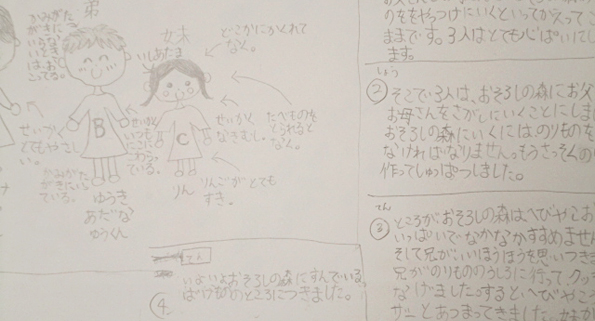 弟
かみがた
がきに
いると
おこ
ってる。
せいかく
とてもやさし
い。
かみがた
がきにいっ
ている。
B
せいかく
いつも
にこにこ
わらっ
ている。
ゆうき
あだな
ゆうくん
妹
いしあたま
どこかにかくれて
なく。
せいかく
なきむし。
たべものを
とられると
なく。
C
りん
りんごがとても
すき。
てん
④
いよいよおそろしの森にすんでいる、
ばけもののところにつきました。
のをやっつけにいくといってかえってこ
ままです。3人はとても心ぱいにし
ます。
しょう
②
そこで3人は、おそろしの森にお父
お母さんをさがしにいくことにしま
おそろしの森にいくには、のりものを
なければなりません。もうさっそくの
作ってしゅっぱつしました。
てん
③
ところがおそろしの森はへびやこお
いっぱいでなかなかすすめませ
そして兄が、いいほうほうを思いつき
兄がのりもののうしろに行って、クッ
なげました。するとへびやこ
サッとあつまってきました。妹が